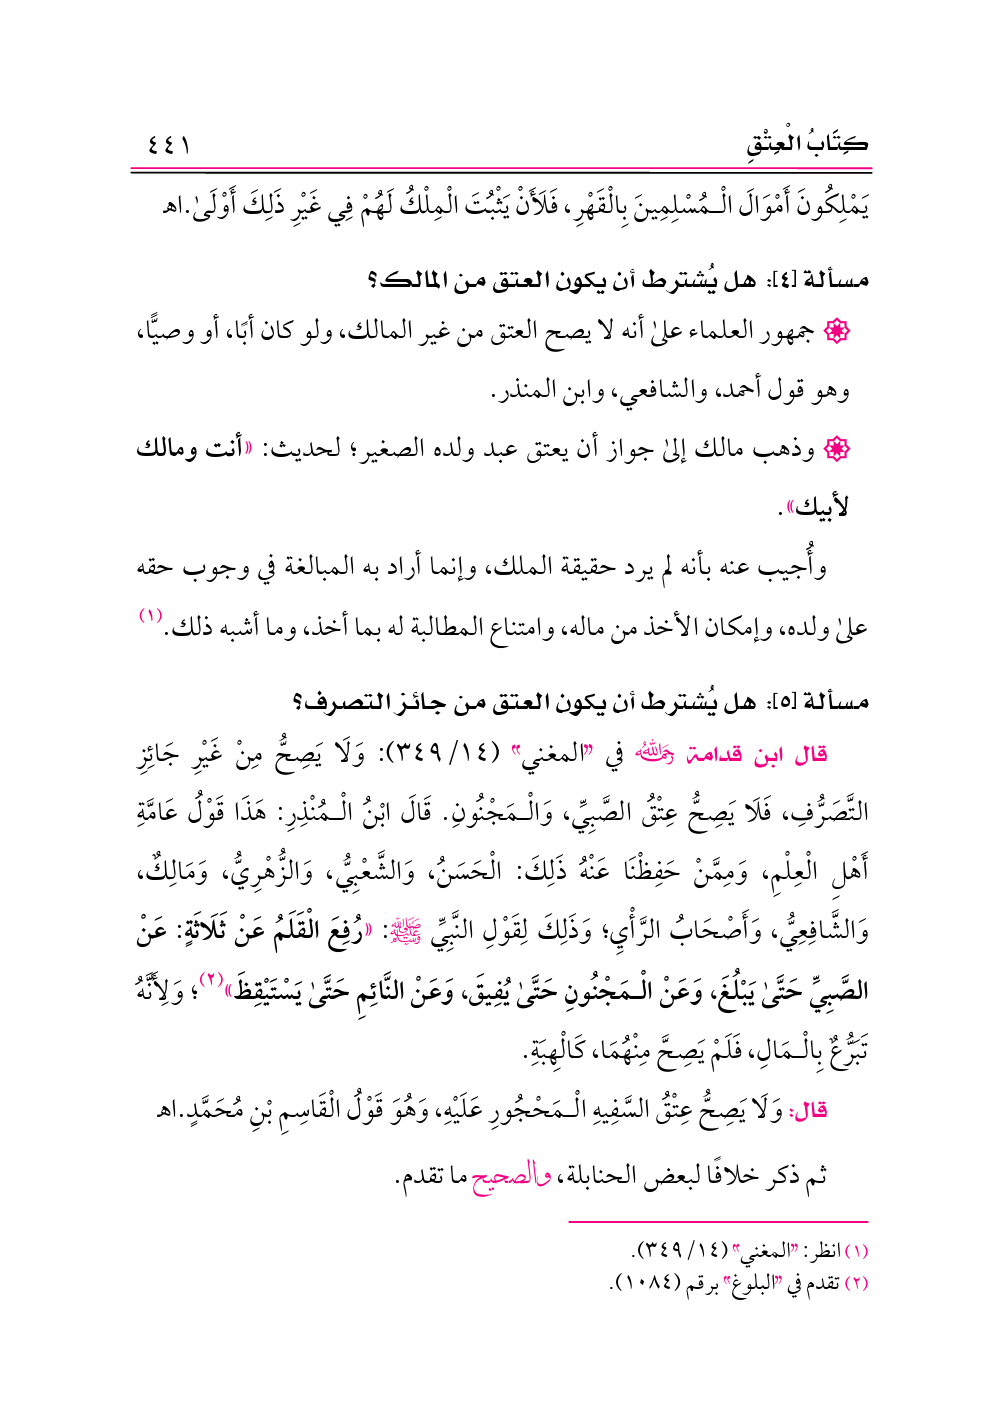 كِتَابُ الْعِتْقِ ٤٤١
يَمْلِكُونَ أَمْوَالَ الْـمُسْلِمِينَ بِالْقَهْرِ، فَلَأَنْ يَثْبُتَ الْمِلْكُ لَهُمْ فِي غَيْرِ ذَلِكَ أَوْلَىٰ.اهـ
مسألة [٤]: هل يُشترط أن يكون العتق من المالك؟
جمهور العلماء علىٰ أنه لا يصح العتق من غير المالك، ولو كان أبًا، أو وصيًّا،
وهو قول أحمد، والشافعي، وابن المنذر.
وذهب مالك إلىٰ جواز أن يعتق عبد ولده الصغير؛ لحديث: «أنت ومالك
لأبيك».
وأُجيب عنه بأنه لم يرد حقيقة الملك، وإنما أراد به المبالغة في وجوب حقه
علىٰ ولده، وإمكان الأخذ من ماله، وامتناع المطالبة له بما أخذ، وما أشبه ذلك.(١)
مسألة [٥]: هل يُشترط أن يكون العتق من جائز التصرف؟
قال ابن قدامة رحمه الله في "المغني" (١٤/ ٣٤٩): وَلَا يَصِحُّ مِنْ غَيْرِ جَائِزِ
التَّصَرُّفِ، فَلَا يَصِحُّ عِتْقُ الصَّبِيِّ، وَالْـمَجْنُونِ. قَالَ ابْنُ الْـمُنْذِرِ: هَذَا قَوْلُ عَامَّةِ
أَهْلِ الْعِلْمِ، وَمِمَّنْ حَفِظْنَا عَنْهُ ذَلِكَ: الْحَسَنُ، وَالشَّعْبِيُّ، وَالزُّهْرِيُّ، وَمَالِكٌ،
وَالشَّافِعِيُّ، وَأَصْحَابُ الرَّأْيِ؛ وَذَلِكَ لِقَوْلِ النَّبِيِّ ﷺ: «رُفِعَ الْقَلَمُ عَنْ ثَلَاثَةٍ: عَنْ
الصَّبِيِّ حَتَّىٰ يَبْلُغَ، وَعَنْ الْـمَجْنُونِ حَتَّىٰ يُفِيقَ، وَعَنْ النَّائِمِ حَتَّىٰ يَسْتَيْقِظَ»(٢)؛ وَلِأَنَّهُ
تَبَرُّعٌ بِالْـمَالِ، فَلَمْ يَصِحَّ مِنْهُمَا، كَالْهِبَةِ.
قال: وَلَا يَصِحُّ عِتْقُ السَّفِيهِ الْـمَحْجُورِ عَلَيْهِ، وَهُوَ قَوْلُ الْقَاسِمِ بْنِ مُحَمَّدٍ.اهـ
ثم ذكر خلافًا لبعض الحنابلة، والصحيح ما تقدم.
(١) انظر: "المغني" (١٤/ ٣٤٩).
(٢) تقدم في "البلوغ" برقم (١٠٨٤).